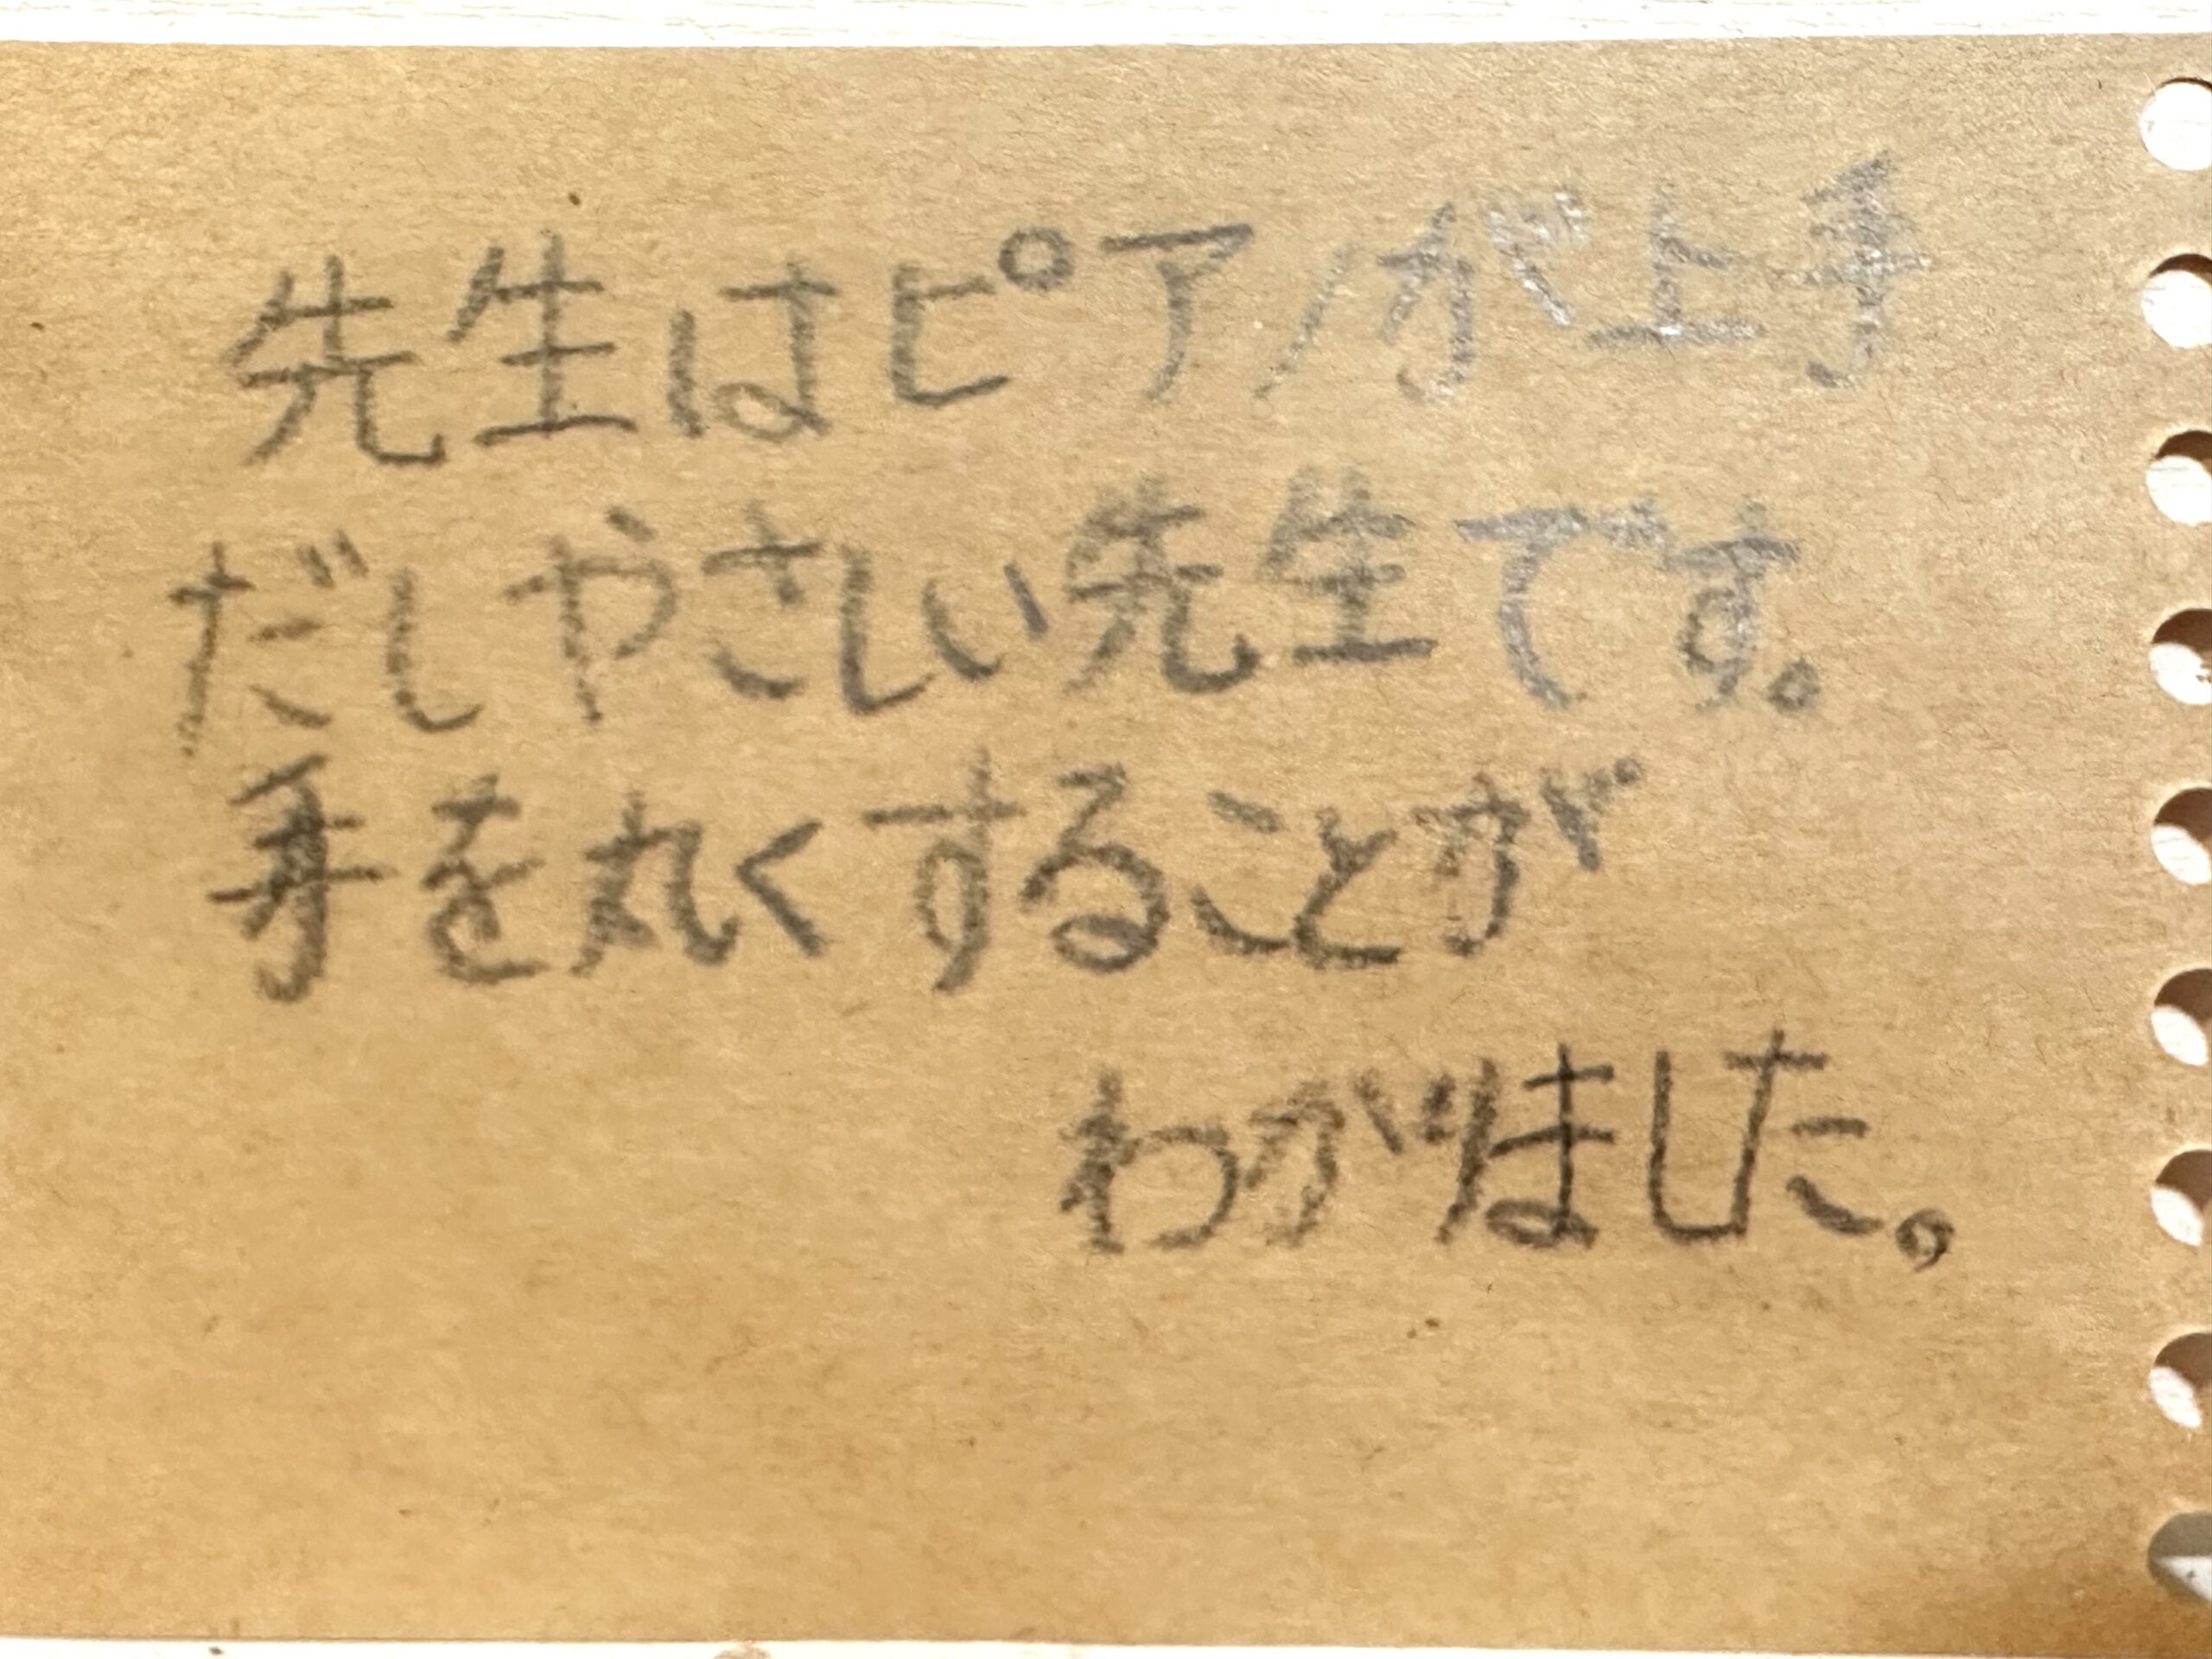 先生はピアノが上手
だしやさしい先生です。
手を丸くすることが
わかりました。